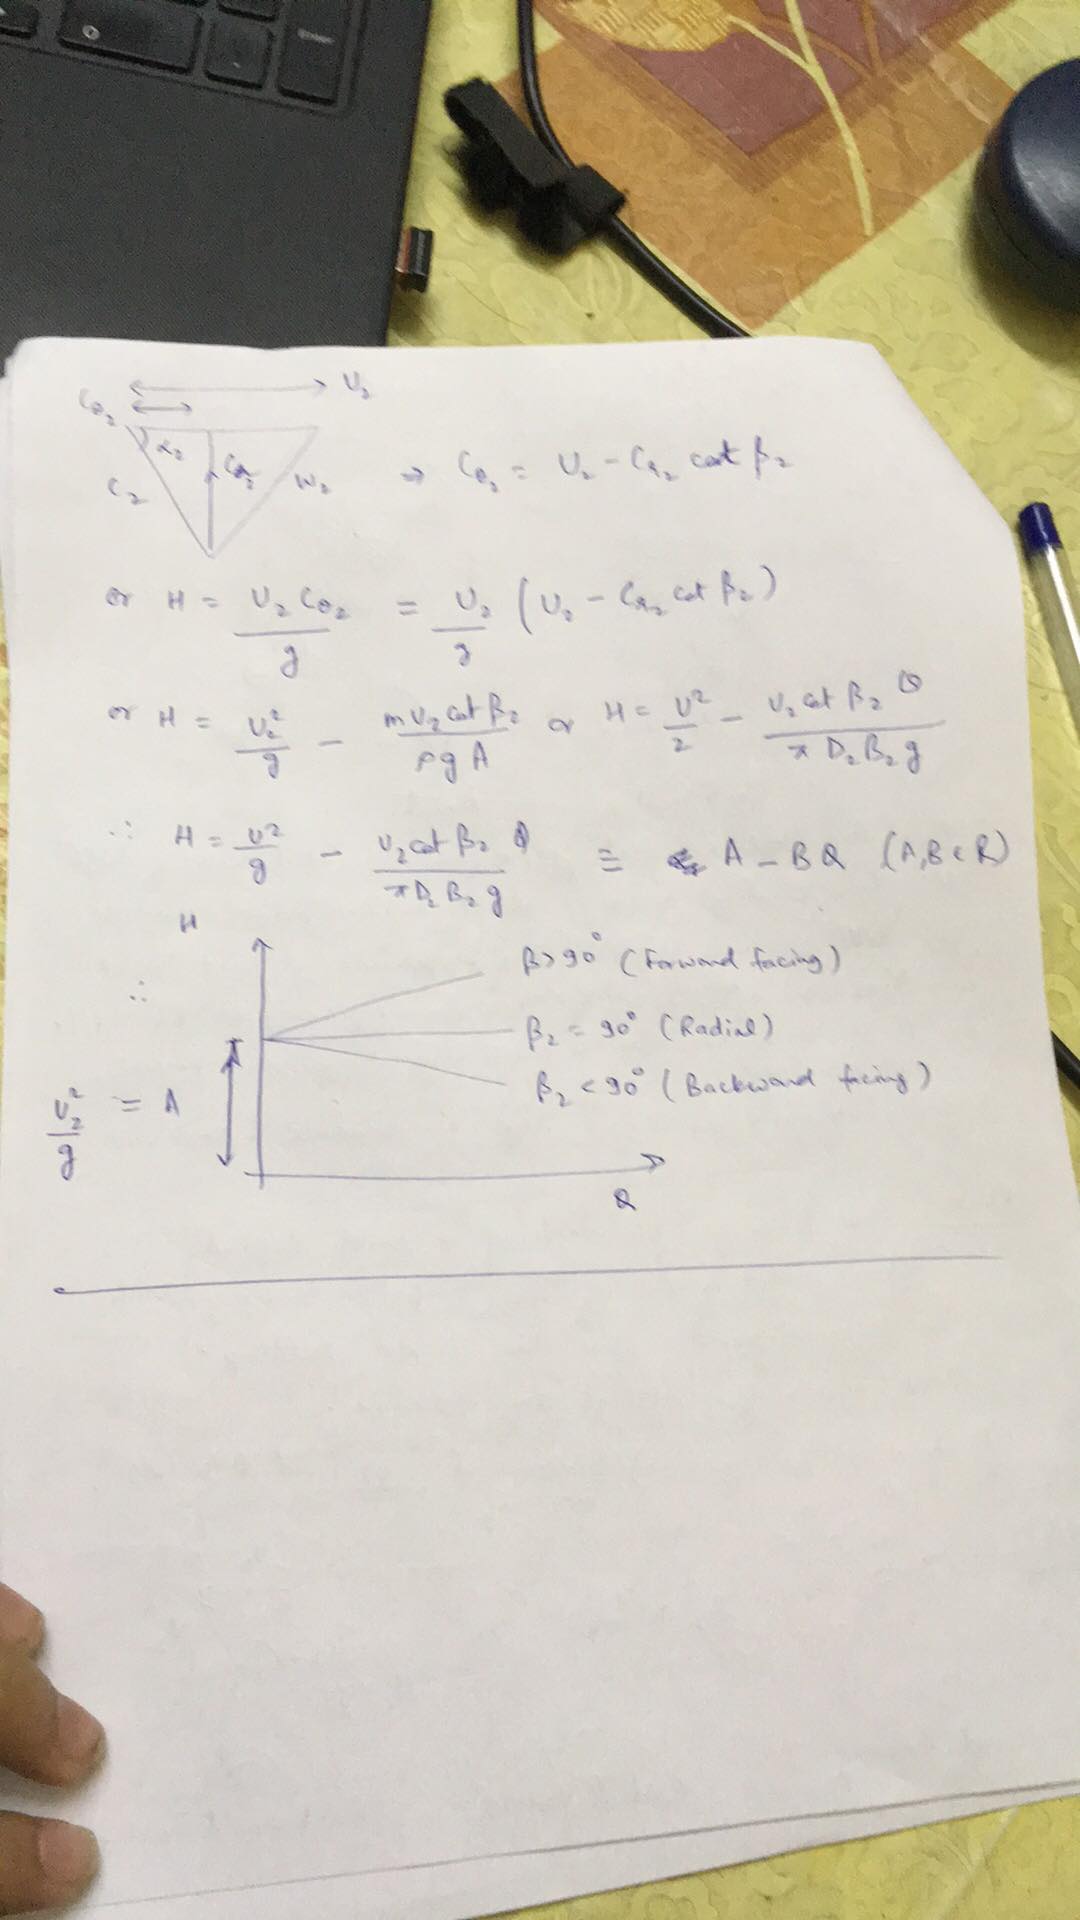 U₂
Cθ₂
α₂ Cr₂
C₂ W₂ ⇒ Cθ₂ = U₂ - Cr₂ cot β₂
or H = U₂ Cθ₂ / g = U₂ / g (U₂ - Cr₂ cot β₂)
or H = U₂² / g - m U₂ cot β₂ / ρ g A or H = U² / 2 - U₂ cot β₂ Q / π D₂ B₂ g
∴ H = U² / g - U₂ cot β₂ Q / π D₂ B₂ g ≡ A - BQ (A, B ∈ R)
H
β > 90° (Forward facing)
∴
β₂ = 90° (Radial)
β₂ < 90° (Backward facing)
U₂² / g = A
Q